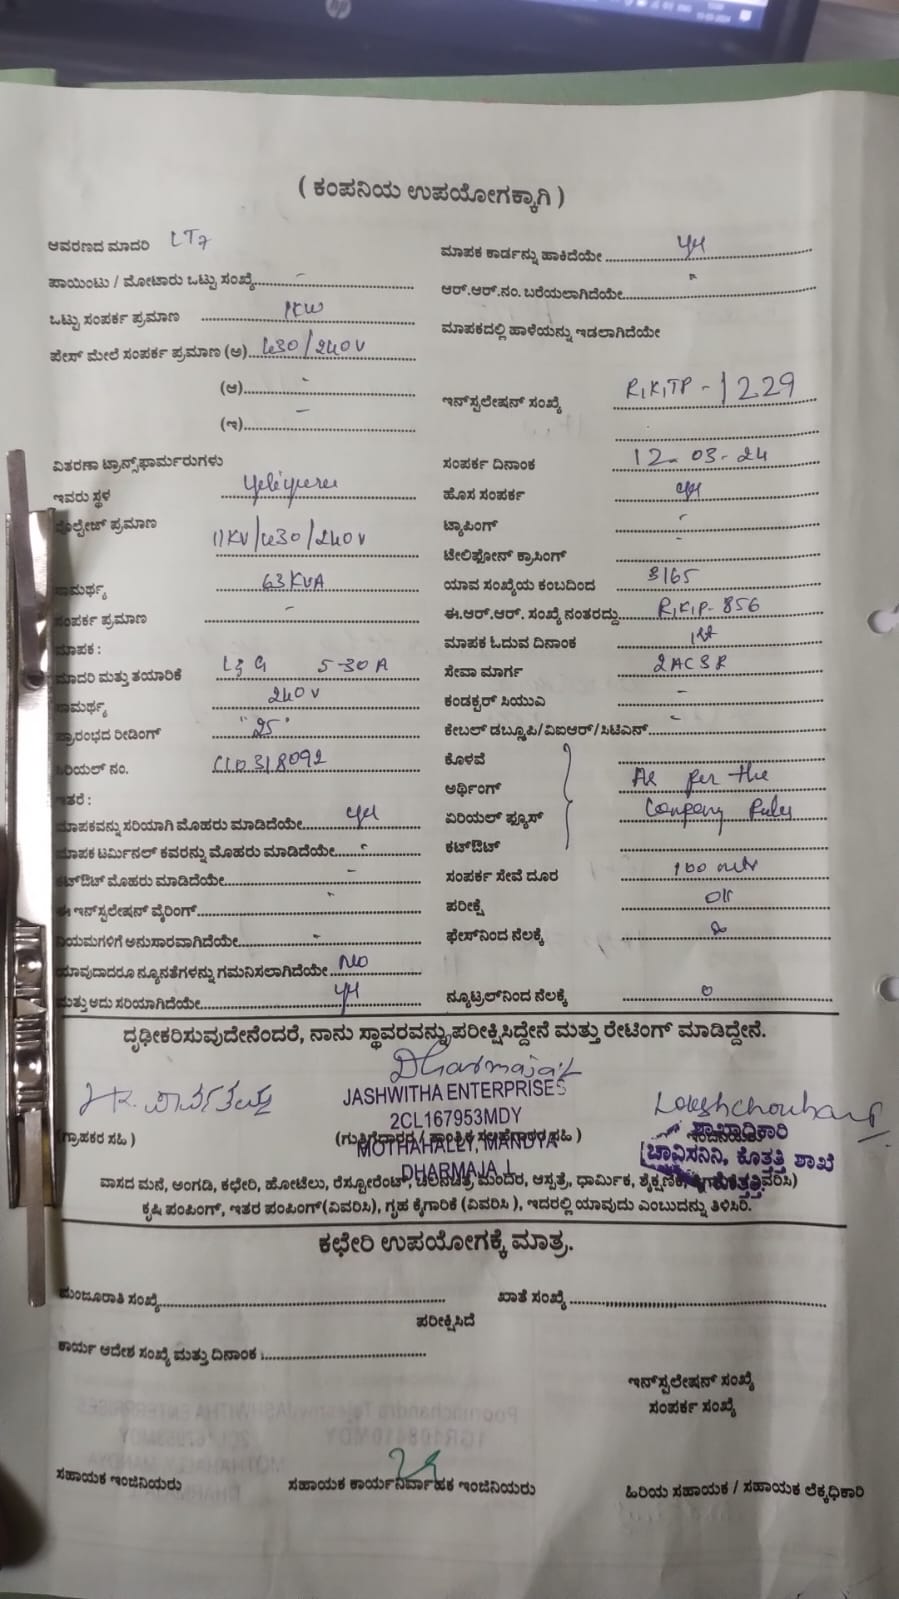 ( ಕಂಪನಿಯ ಉಪಯೋಗಕ್ಕಾಗಿ )
ಆವರಣದ ಮಾದರಿ LT7
ಪಾಯಿಂಟು / ಮೋಟಾರು ಒಟ್ಟು ಸಂಖ್ಯೆ -
ಒಟ್ಟು ಸಂಪರ್ಕ ಪ್ರಮಾಣ 1KW
ಪೇಸ್ ಮೇಲೆ ಸಂಪರ್ಕ ಪ್ರಮಾಣ (ಅ) 430/240V
(ಆ) -
(ಇ) -
ವಿತರಣಾ ಟ್ರಾನ್ಸ್‌ಫಾರ್ಮರುಗಳು
ಇವರು ಸ್ಥಳ
ವೊಲ್ಟೇಜ್ ಪ್ರಮಾಣ 11KV/430/240V
ಸಾಮರ್ಥ್ಯ 63KVA
ಸಂಪರ್ಕ ಪ್ರಮಾಣ -
ಮಾಪಕ :
ಮಾದರಿ ಮತ್ತು ತಯಾರಿಕೆ L&G 5-30A
ಸಾಮರ್ಥ್ಯ 240V
ಪ್ರಾರಂಭದ ರೀಡಿಂಗ್ "25"
ಸಿರಿಯಲ್ ನಂ.
ಇತರೆ :
ಮಾಪಕವನ್ನು ಸರಿಯಾಗಿ ಮೊಹರು ಮಾಡಿದೆಯೇ yes
ಮಾಪಕ ಟರ್ಮಿನಲ್ ಕವರನ್ನು ಮೊಹರು ಮಾಡಿದೆಯೇ
ಕಟ್‌ಔಟ್ ಮೊಹರು ಮಾಡಿದೆಯೇ -
ಈ ಇನ್‌ಸ್ಟಲೇಷನ್ ವೈರಿಂಗ್
ನಿಯಮಗಳಿಗೆ ಅನುಸಾರವಾಗಿದೆಯೇ -
ಯಾವುದಾದರೂ ನ್ಯೂನತೆಗಳನ್ನು ಗಮನಿಸಲಾಗಿದೆಯೇ No
ಮತ್ತು ಅದು ಸರಿಯಾಗಿದೆಯೇ yes
ಮಾಪಕ ಕಾರ್ಡನ್ನು ಹಾಕಿದೆಯೇ yes
ಆರ್.ಆರ್.ನಂ. ಬರೆಯಲಾಗಿದೆಯೇ
ಮಾಪಕದಲ್ಲಿ ಹಾಳೆಯನ್ನು ಇಡಲಾಗಿದೆಯೇ
ಇನ್‌ಸ್ಟಲೇಷನ್ ಸಂಖ್ಯೆ RKTP-1229
ಸಂಪರ್ಕ ದಿನಾಂಕ 12-03-24
ಹೊಸ ಸಂಪರ್ಕ yes
ಟ್ಯಾಪಿಂಗ್ -
ಟೆಲಿಫೋನ್ ಕ್ರಾಸಿಂಗ್ -
ಯಾವ ಸಂಖ್ಯೆಯ ಕಂಬದಿಂದ
ಈ.ಆರ್.ಆರ್. ಸಂಖ್ಯೆ ನಂತರದ್ದು RKP-856
ಮಾಪಕ ಓದುವ ದಿನಾಂಕ 1st
ಸೇವಾ ಮಾರ್ಗ 2ACSR
ಕಂಡಕ್ಟರ್ ಸಿಯುವಿ -
ಕೇಬಲ್ ಡಬ್ಲೂಪಿ/ವಿಐಆರ್/ಸಿಟಿಎನ್ -
ಕೊಳವೆ
ಅರ್ಥಿಂಗ್ As per the
ಏರಿಯಲ್ ಫ್ಯೂಸ್ Company Rules
ಕಟ್‌ಔಟ್
ಸಂಪರ್ಕ ಸೇವೆ ದೂರ 100 mtr
ಪರೀಕ್ಷೆ OK
ಫೇಸ್‌ನಿಂದ ನೆಲಕ್ಕೆ
ನ್ಯೂಟ್ರಲ್‌ನಿಂದ ನೆಲಕ್ಕೆ 0
ದೃಢೀಕರಿಸುವುದೇನೆಂದರೆ, ನಾನು ಸ್ಥಾವರವನ್ನು ಪರೀಕ್ಷಿಸಿದ್ದೇನೆ ಮತ್ತು ರೇಟಿಂಗ್ ಮಾಡಿದ್ದೇನೆ.
Dharmaja.L
JASHWITHA ENTERPRISES
2CL167953MDY
MOTHAHALLY, MANDYA
DHARMAJA .L
(ಗ್ರಾಹಕರ ಸಹಿ )
(ಗುತ್ತಿಗೆದಾರರ / ತಾಂತ್ರಿಕ ಸಲಹೆಗಾರರ ಸಹಿ )
ಶಾಖಾಧಿಕಾರಿ
ಚಾವಿಸನಿನಿ, ಕೊತತ್ತಿ ಶಾಖೆ
ಕೊತ್ತತ್ತಿ
ವಾಸದ ಮನೆ, ಅಂಗಡಿ, ಕಛೇರಿ, ಹೋಟೆಲು, ರೆಸ್ಟೋರೆಂಟ್, ಚಲನಚಿತ್ರ ಮಂದಿರ, ಆಸ್ಪತ್ರೆ, ಧಾರ್ಮಿಕ, ಶೈಕ್ಷಣಿಕ, ಕೈಗಾರಿಕೆ (ವಿವರಿಸಿ)
ಕೃಷಿ ಪಂಪಿಂಗ್, ಇತರ ಪಂಪಿಂಗ್(ವಿವರಿಸಿ), ಗೃಹ ಕೈಗಾರಿಕೆ (ವಿವರಿಸಿ ), ಇದರಲ್ಲಿ ಯಾವುದು ಎಂಬುದನ್ನು ತಿಳಿಸಿರಿ.
ಕಛೇರಿ ಉಪಯೋಗಕ್ಕೆ ಮಾತ್ರ.
ಮಂಜೂರಾತಿ ಸಂಖ್ಯೆ
ಖಾತೆ ಸಂಖ್ಯೆ
ಪರೀಕ್ಷಿಸಿದೆ
ಕಾರ್ಯ ಆದೇಶ ಸಂಖ್ಯೆ ಮತ್ತು ದಿನಾಂಕ :
ಇನ್‌ಸ್ಟಲೇಷನ್ ಸಂಖ್ಯೆ
ಸಂಪರ್ಕ ಸಂಖ್ಯೆ
ಸಹಾಯಕ ಇಂಜಿನಿಯರು
ಸಹಾಯಕ ಕಾರ್ಯನಿರ್ವಾಹಕ ಇಂಜಿನಿಯರು
ಹಿರಿಯ ಸಹಾಯಕ / ಸಹಾಯಕ ಲೆಕ್ಕಧಿಕಾರಿ